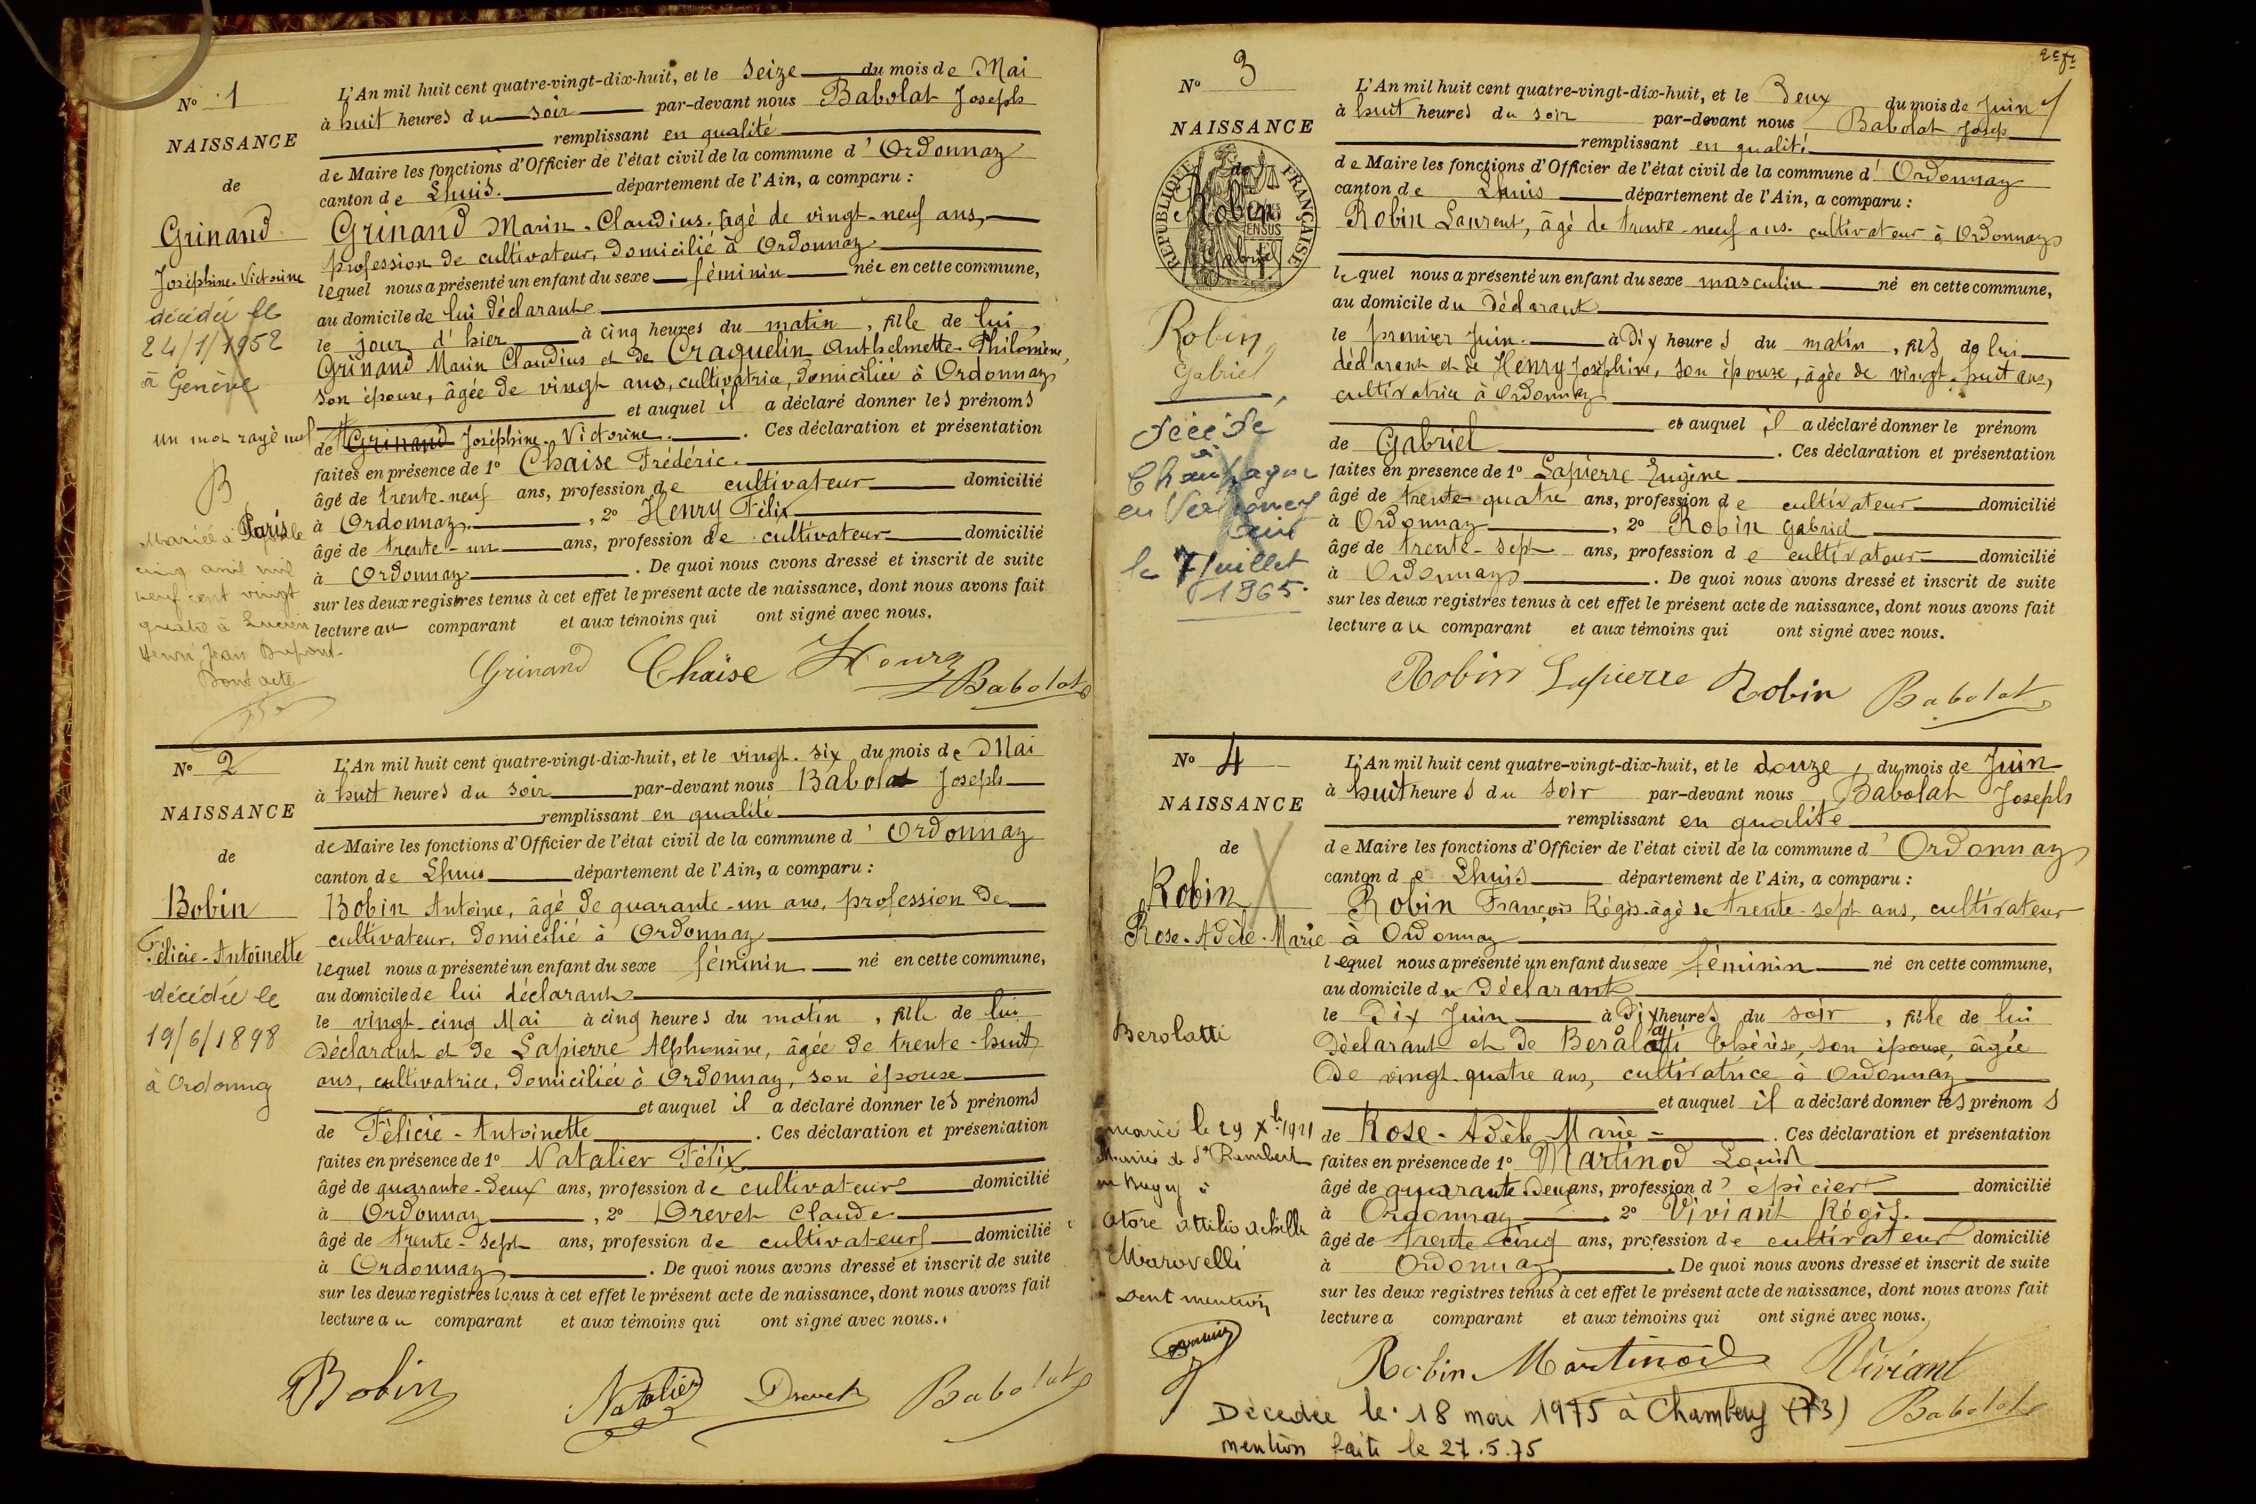 N° 1
NAISSANCE
de
Grinand
Joséphine-Victorine
décédée le
24/1/1952
à Genève
un mot rayé nul
B
Mariée à Paris
cinq avril mil
neuf cent vingt
quatre à Lucien
Henri Jean Dupont
Dont acte
L'An mil huit cent quatre-vingt-dix-huit, et le seize du mois de Mai
à huit heures du soir par-devant nous Babolat Joseph
remplissant en qualité
de Maire les fonctions d'Officier de l'état civil de la commune d'Ordonnaz
canton de Lhuis. département de l'Ain, a comparu :
Grinand Marin-Claudius, âgé de vingt-neuf ans,
profession de cultivateur, domicilié à Ordonnaz
lequel nous a présenté un enfant du sexe féminin née en cette commune,
au domicile de lui déclarant
le jour d'hier à cinq heures du matin, fille de lui,
Grinand Marin Claudius et de Craquelin Anthelmette-Philomène,
son épouse, âgée de vingt ans, cultivatrice, domiciliée à Ordonnaz
et auquel il a déclaré donner les prénoms
de Grinand Joséphine-Victorine. Ces déclaration et présentation
faites en présence de 1° Chaise Frédéric.
âgé de trente-neuf ans, profession de cultivateur domicilié
à Ordonnaz. , 2° Henry Félix
âgé de trente-un ans, profession de cultivateur domicilié
à Ordonnaz. De quoi nous avons dressé et inscrit de suite
sur les deux registres tenus à cet effet le présent acte de naissance, dont nous avons fait
lecture au comparant et aux témoins qui ont signé avec nous.
Grinand Chaise Henry Babolat
N° 2
NAISSANCE
de
Bobin
Félicie-Antoinette
décédée le
19/6/1898
à Ordonnaz
L'An mil huit cent quatre-vingt-dix-huit, et le vingt-six du mois de Mai
à huit heures du soir par-devant nous Babolat Joseph
remplissant en qualité
de Maire les fonctions d'Officier de l'état civil de la commune d'Ordonnaz
canton de Lhuis département de l'Ain, a comparu :
Bobin Antoine, âgé de quarante-un ans, profession de
cultivateur, domicilié à Ordonnaz
lequel nous a présenté un enfant du sexe féminin né en cette commune,
au domicile de lui déclarant
le vingt-cinq Mai à cinq heures du matin, fille de lui
déclarant et de Lapierre Alphonsine, âgée de trente-huit
ans, cultivatrice, domiciliée à Ordonnaz, son épouse
et auquel il a déclaré donner les prénoms
de Félicie-Antoinette. Ces déclaration et présentation
faites en présence de 1° Natalier Félix
âgé de quarante-deux ans, profession de cultivateur domicilié
à Ordonnaz, 2° Drevet Claude
âgé de trente-sept ans, profession de cultivateur domicilié
à Ordonnaz. De quoi nous avons dressé et inscrit de suite
sur les deux registres tenus à cet effet le présent acte de naissance, dont nous avons fait
lecture au comparant et aux témoins qui ont signé avec nous.
Bobin Natalier Drevet Babolat
N° 3
NAISSANCE
de
RÉPUBLIQUE FRANÇAISE
Robin
Gabriel
Robin
Gabriel
décédé
à
Champagne
en Valromey
Ain
le 7 Juillet
1965.
L'An mil huit cent quatre-vingt-dix-huit, et le deux du mois de Juin
à huit heures du soir par-devant nous Babolat Josep
remplissant en qualité
de Maire les fonctions d'Officier de l'état civil de la commune d'Ordonnaz
canton de Lhuis département de l'Ain, a comparu :
Robin Laurent, âgé de trente-neuf ans. cultivateur à Ordonnaz
lequel nous a présenté un enfant du sexe masculin né en cette commune,
au domicile du déclarant
le premier Juin. à dix heures du matin, fils de lui
déclarant et de Henry Joséphine, son épouse, âgée de vingt-huit ans,
cultivatrice à Ordonnaz
et auquel il a déclaré donner le prénom
de Gabriel. Ces déclaration et présentation
faites en présence de 1° Lapierre Eugène
âgé de trente-quatre ans, profession de cultivateur domicilié
à Ordonnaz, 2° Robin Gabriel
âgé de trente-sept ans, profession de cultivateur domicilié
à Ordonnaz. De quoi nous avons dressé et inscrit de suite
sur les deux registres tenus à cet effet le présent acte de naissance, dont nous avons fait
lecture au comparant et aux témoins qui ont signé avec nous.
Robin Lapierre Robin Babolat
N° 4
NAISSANCE
de
Robin
Rose-Adèle-Marie
Berolatti
mariée le 29 Xbre 1921
Mairie de St Rambert
en Bugey à
Atore Attilio Achille
Marovelli
Dont mention
L'An mil huit cent quatre-vingt-dix-huit, et le douze, du mois de Juin
à huit heures du soir par-devant nous Babolat Joseph
remplissant en qualité
de Maire les fonctions d'Officier de l'état civil de la commune d'Ordonnaz
canton de Lhuis département de l'Ain, a comparu :
Robin François Régis âgé de trente-sept ans, cultivateur
à Ordonnaz
lequel nous a présenté un enfant du sexe féminin né en cette commune,
au domicile du déclarant
le dix Juin à dix heures du soir, fille de lui
déclarant et de Berolatti Thérèse, son épouse, âgée
de vingt-quatre ans, cultivatrice à Ordonnaz
et auquel il a déclaré donner les prénoms
de Rose-Adèle-Marie. Ces déclaration et présentation
faites en présence de 1° Martinod Louis
âgé de quarante deux ans, profession d'épicier domicilié
à Ordonnaz 2° Viviant Régis.
âgé de trente-cinq ans, profession de cultivateur domicilié
à Ordonnaz. De quoi nous avons dressé et inscrit de suite
sur les deux registres tenus à cet effet le présent acte de naissance, dont nous avons fait
lecture a comparant et aux témoins qui ont signé avec nous.
Robin Martinod Viviant
Babolat
Décédée le 18 mai 1975 à Chambéry (73)
mention faite le 27.5.75